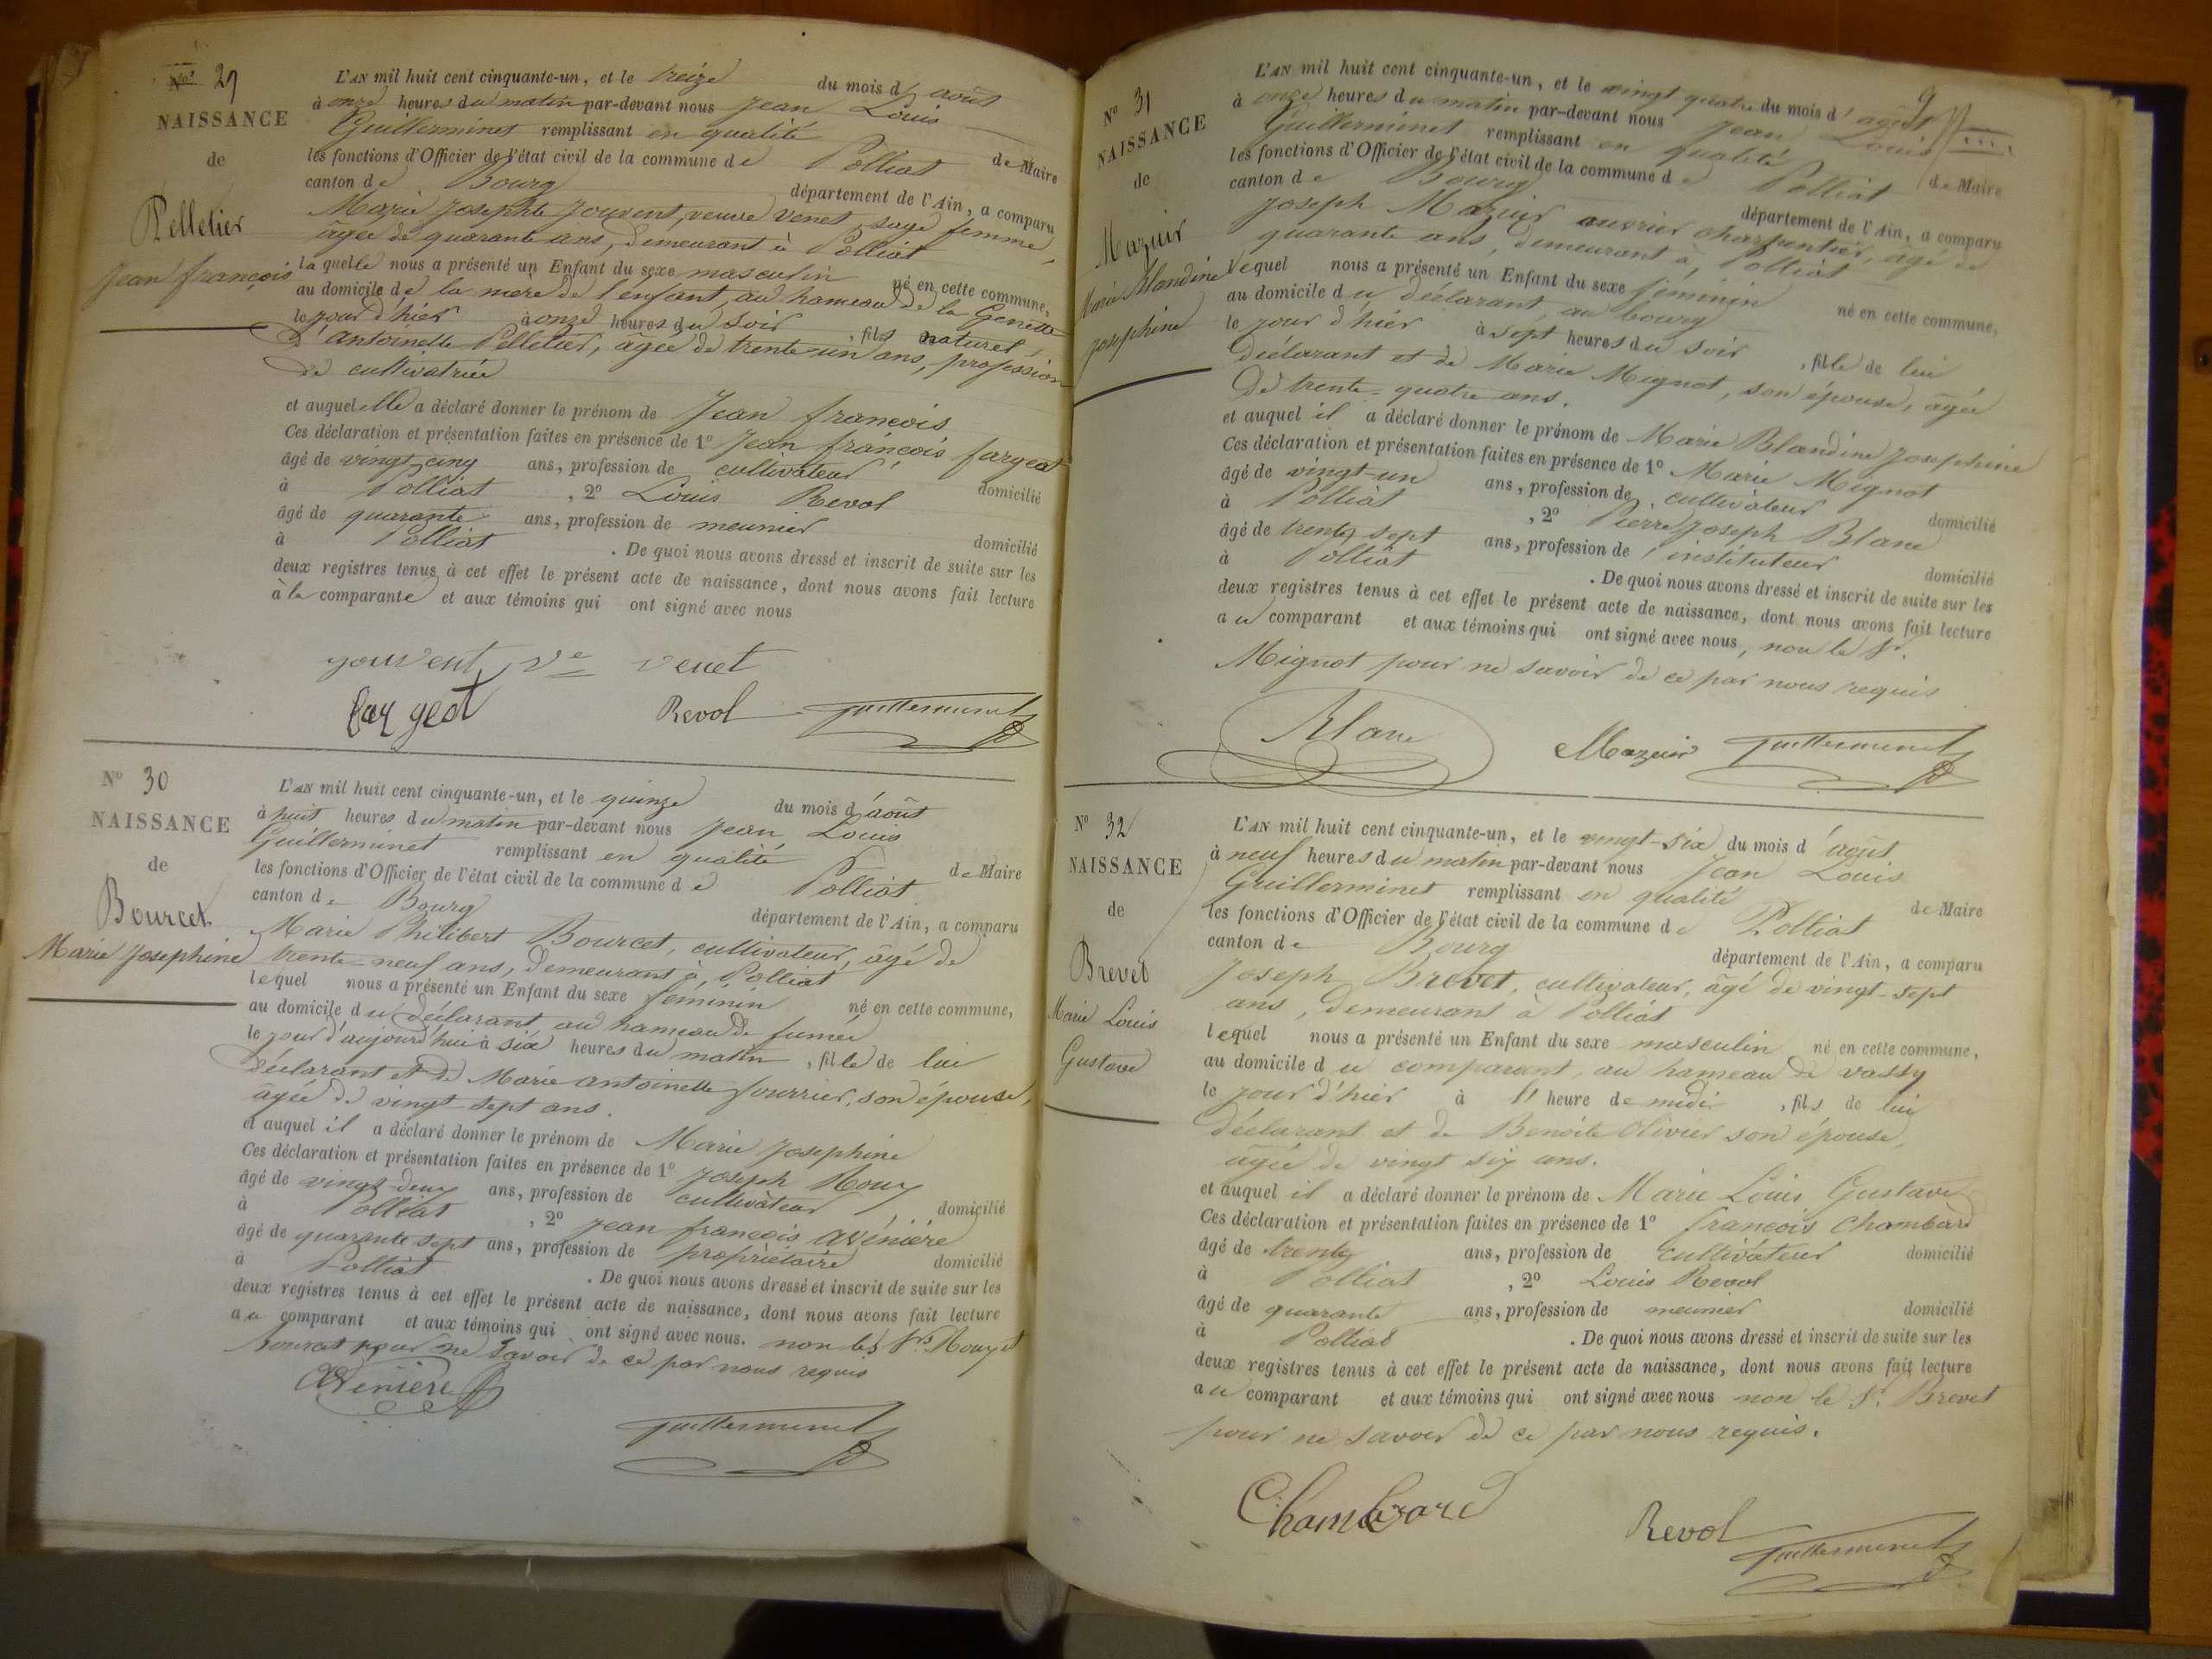 Nº 29
NAISSANCE
de
Pelletier
Jean françois
L'AN mil huit cent cinquante-un, et le treize du mois d'août
à onze heures du matin par-devant nous Jean Louis
Guillerminet remplissant en qualité de Maire
les fonctions d'Officier de l'état civil de la commune de Polliat
canton de Bourg département de l'Ain, a comparu
Marie Josephte Jouvent, veuve Venet, sage femme,
âgée de quarante ans, demeurant à Polliat
laquelle nous a présenté un Enfant du sexe masculin né en cette commune,
au domicile de la mère de l'enfant, au hameau de la Genette
le jour d'hier à onze heures du soir, fils naturel
d'Antoinette Pelletier, âgée de trente-un ans, profession
de cultivatrice
et auquel elle a déclaré donner le prénom de Jean françois
Ces déclaration et présentation faites en présence de 1º Jean françois fargeot
âgé de vingt cinq ans, profession de cultivateur domicilié
à Polliat, 2º Louis Revol
âgé de quarante ans, profession de meunier domicilié
à Polliat. De quoi nous avons dressé et inscrit de suite sur les
deux registres tenus à cet effet le présent acte de naissance, dont nous avons fait lecture
à la comparante et aux témoins qui ont signé avec nous
jouvent Ve venet
fargeot Revol Guillerminet
Nº 30
NAISSANCE
de
Bourcet
Marie Josephine
L'AN mil huit cent cinquante-un, et le quinze du mois d'août
à huit heures du matin par-devant nous Jean Louis
Guillerminet remplissant en qualité de Maire
les fonctions d'Officier de l'état civil de la commune de Polliat
canton de Bourg département de l'Ain, a comparu
Marie Philibert Bourcet, cultivateur, âgé de
trente-neuf ans, demeurant à Polliat
lequel nous a présenté un Enfant du sexe féminin né en cette commune,
au domicile du déclarant, au hameau de fumée
le jour d'aujourd'hui à six heures du matin, fille de lui
déclarant et de Marie Antoinette fourrier, son épouse,
âgée de vingt sept ans.
et auquel il a déclaré donner le prénom de Marie Josephine
Ces déclaration et présentation faites en présence de 1º Joseph Mouy
âgé de vingt-deux ans, profession de cultivateur domicilié
à Polliat, 2º Jean françois avénière
âgé de quarante sept ans, profession de propriétaire domicilié
à Polliat. De quoi nous avons dressé et inscrit de suite sur les
deux registres tenus à cet effet le présent acte de naissance, dont nous avons fait lecture
au comparant et aux témoins qui ont signé avec nous. non les Srs Mouy et
Bourcet pour ne savoir de ce par nous requis
avénière
Guillerminet
9
Nº 31
NAISSANCE
de
Mazuir
Marie Blandine
Josephine
L'AN mil huit cent cinquante-un, et le vingt quatre du mois d'août
à onze heures du matin par-devant nous Jean Louis
Guillerminet remplissant en qualité de Maire
les fonctions d'Officier de l'état civil de la commune de Polliat
canton de Bourg département de l'Ain, a comparu
Joseph Mazuir ouvrier charpentier, âgé de
quarante ans, demeurant à Polliat
lequel nous a présenté un Enfant du sexe féminin né en cette commune,
au domicile du déclarant, au bourg
le jour d'hier à sept heures du soir, fille de lui
déclarant et de Marie Mignot, son épouse, âgée
de trente-quatre ans.
et auquel il a déclaré donner le prénom de Marie Blandine Josephine
Ces déclaration et présentation faites en présence de 1º Marie Mignot
âgé de vingt-un ans, profession de cultivateur domicilié
à Polliat, 2º Pierre Joseph Blanc
âgé de trente sept ans, profession de instituteur domicilié
à Polliat. De quoi nous avons dressé et inscrit de suite sur les
deux registres tenus à cet effet le présent acte de naissance, dont nous avons fait lecture
au comparant et aux témoins qui ont signé avec nous, non le Sr.
Mignot pour ne savoir de ce par nous requis
Blanc Mazuir Guillerminet
Nº 32
NAISSANCE
de
Brevet
Marie Louis
Gustave
L'AN mil huit cent cinquante-un, et le vingt-six du mois d'août
à neuf heures du matin par-devant nous Jean Louis
Guillerminet remplissant en qualité de Maire
les fonctions d'Officier de l'état civil de la commune de Polliat
canton de Bourg département de l'Ain, a comparu
Joseph Brevet, cultivateur, âgé de vingt-sept
ans, demeurant à Polliat
lequel nous a présenté un Enfant du sexe masculin né en cette commune,
au domicile du comparant, au hameau de vassy
le jour d'hier à l'heure de midi, fils de lui
déclarant et de Benoite Olivier son épouse,
âgée de vingt six ans.
et auquel il a déclaré donner le prénom de Marie Louis Gustave
Ces déclaration et présentation faites en présence de 1º françois Chambard
âgé de trente ans, profession de cultivateur domicilié
à Polliat, 2º Louis Revol
âgé de quarante ans, profession de meunier domicilié
à Polliat. De quoi nous avons dressé et inscrit de suite sur les
deux registres tenus à cet effet le présent acte de naissance, dont nous avons fait lecture
au comparant et aux témoins qui ont signé avec nous non le Sr. Brevet
pour ne savoir de ce par nous requis.
Chambard Revol
Guillerminet